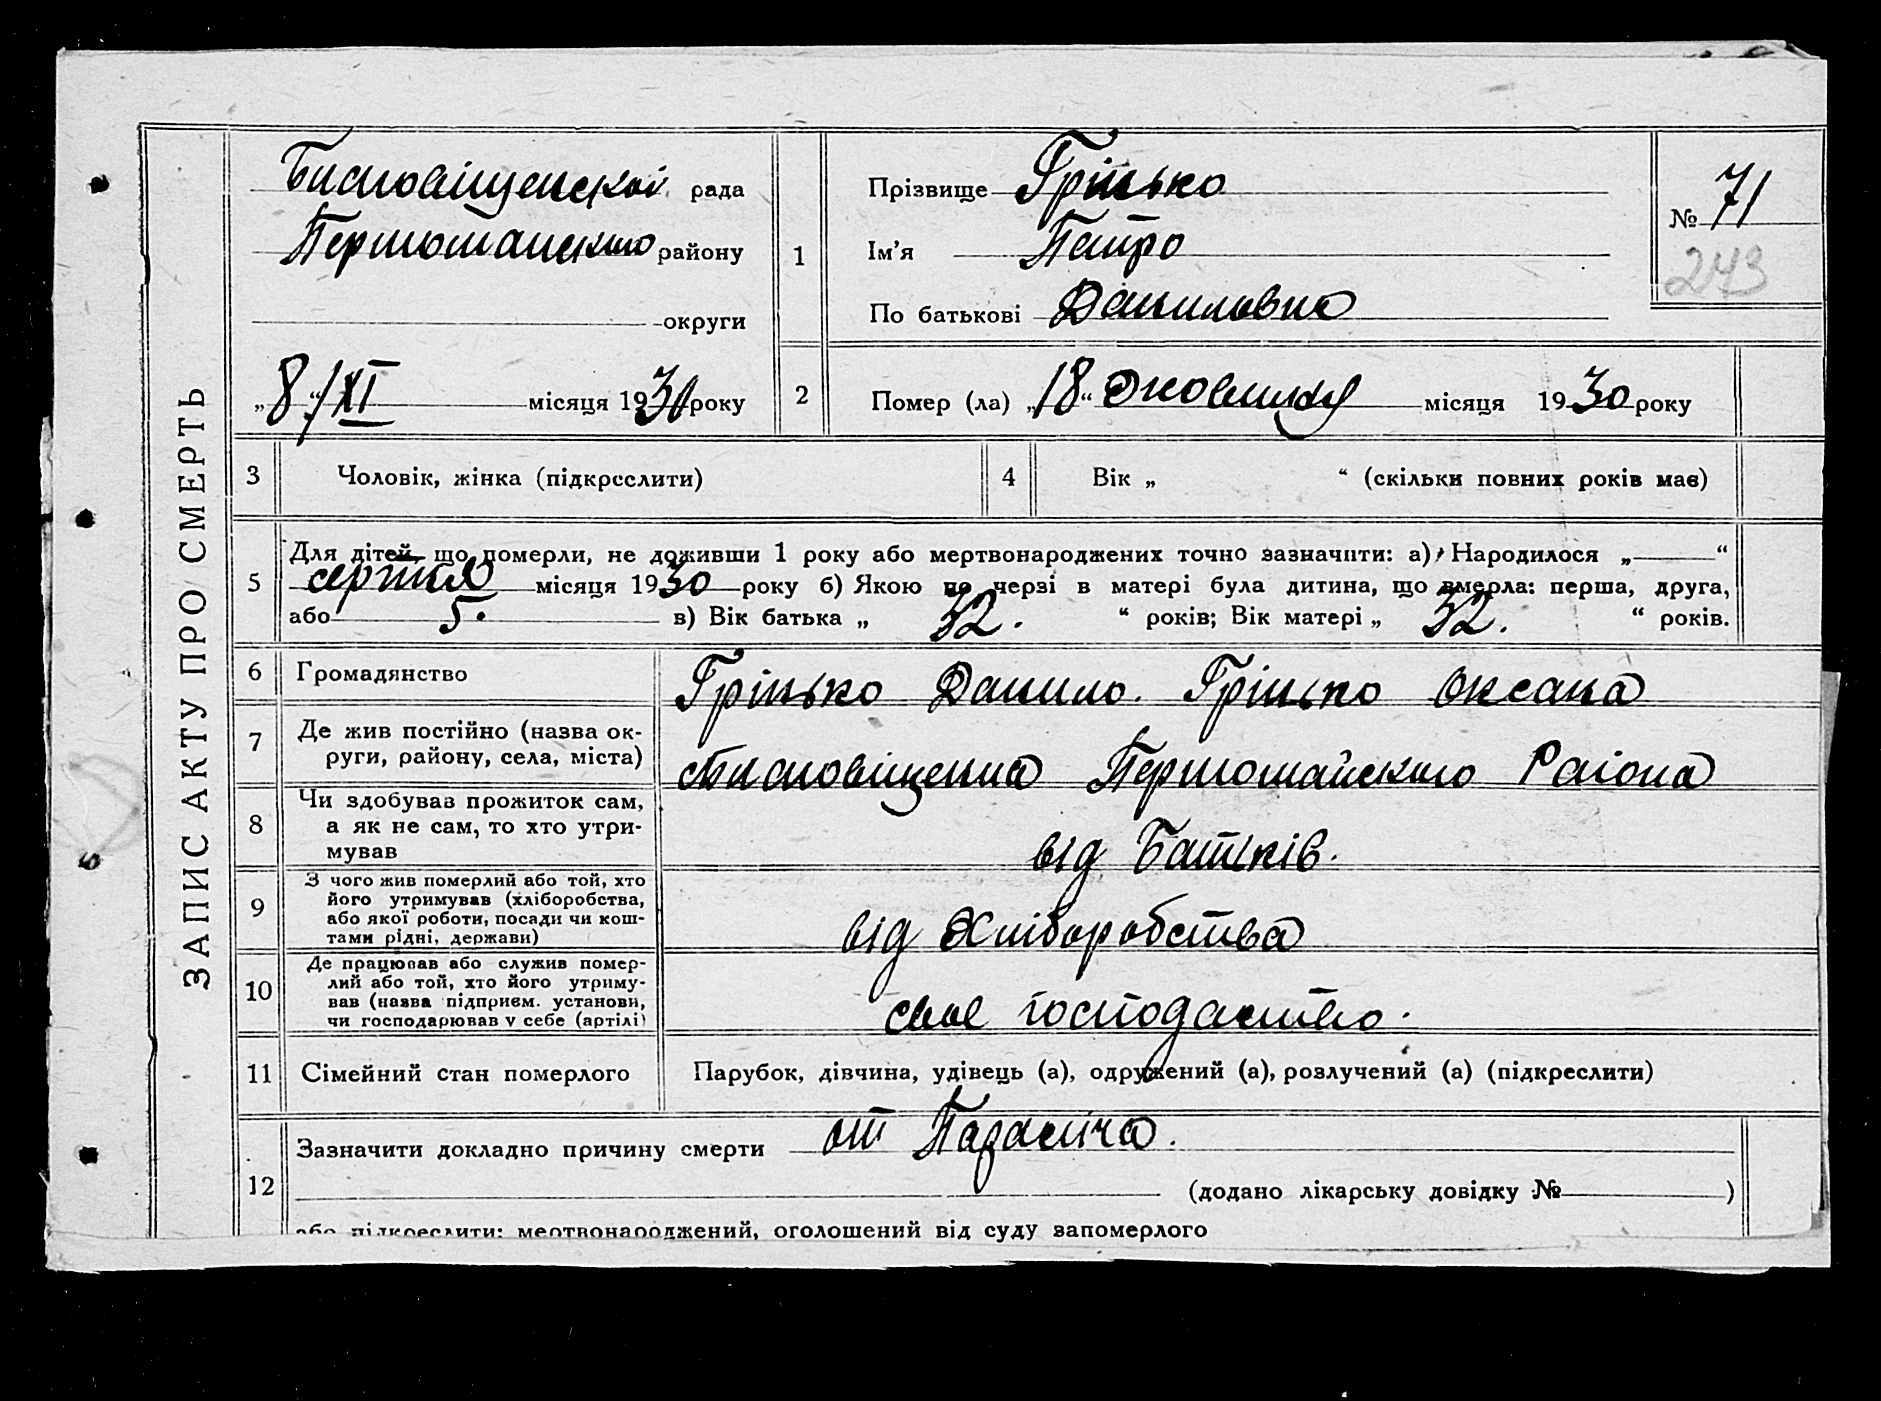 ЗАПИС АКТУ ПРО СМЕРТЬ
рада
Первомайського району
округи
„8“ XI місяця 1930 року
1
Прізвище Грінько
Ім'я Петро
По батькові Данилович
№ 71
243
2
Помер (ла) „18“ жовтня місяця 1930 року
3 Чоловік, жінка (підкреслити)
4 Вік „ “ (скільки повних років має)
5
Для дітей, що померли, не доживши 1 року або мертвонароджених точно зазначити: а) Народилося „ “
серпня місяця 1930 року б) Якою по черзі в матері була дитина, що вмерла: перша, друга,
або 5. в) Вік батька „ 32. “ років; Вік матері „ 32. “ років.
6 Громадянство
Грінько Данило. Грінько Оксана
7 Де жив постійно (назва ок-
руги, району, села, міста)
Первомайського Раіона
8
Чи здобував прожиток сам,
а як не сам, то хто утри-
мував
від Батьків.
9
З чого жив померлий або той, хто
його утримував (хліборобства,
або якої роботи, посади чи кош-
тами рідні, держави)
від Хліборобства
10
Де працював або служив помер-
лий або той, хто його утриму-
вав (назва підприєм. установи,
чи господарював у себе (артілі)
своє господарство.
11 Сімейний стан померлого
Парубок, дівчина, удівець (а), одружений (а), розлучений (а) (підкреслити)
12
Зазначити докладно причину смерти от
(додано лікарську довідку № )
або підкреслити: мертвонароджений, оголошений від суду запомерлого